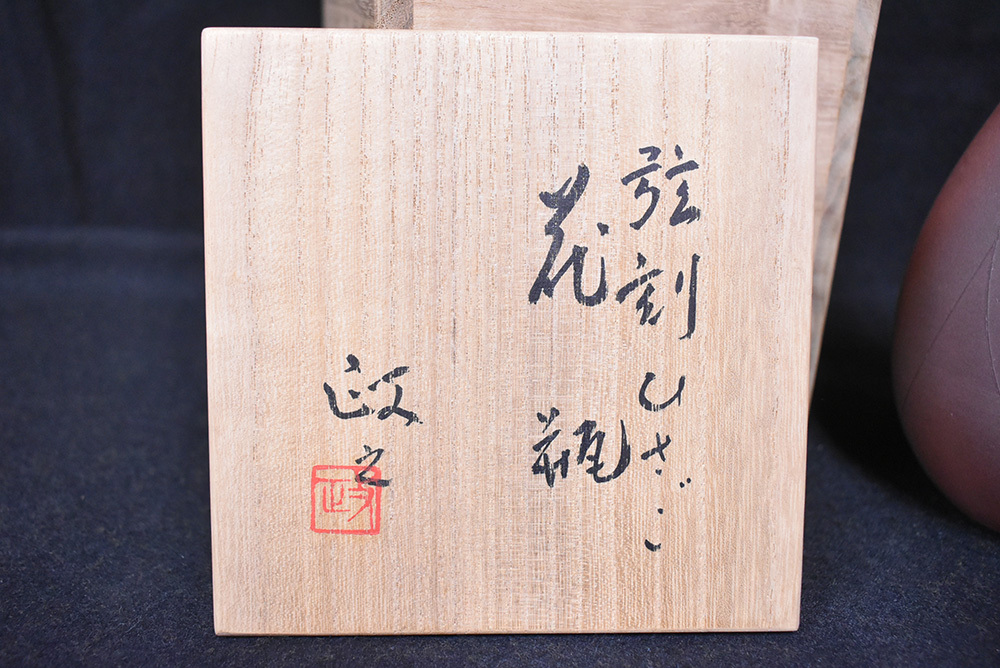 弦刻ひさご
花瓶
政之
政